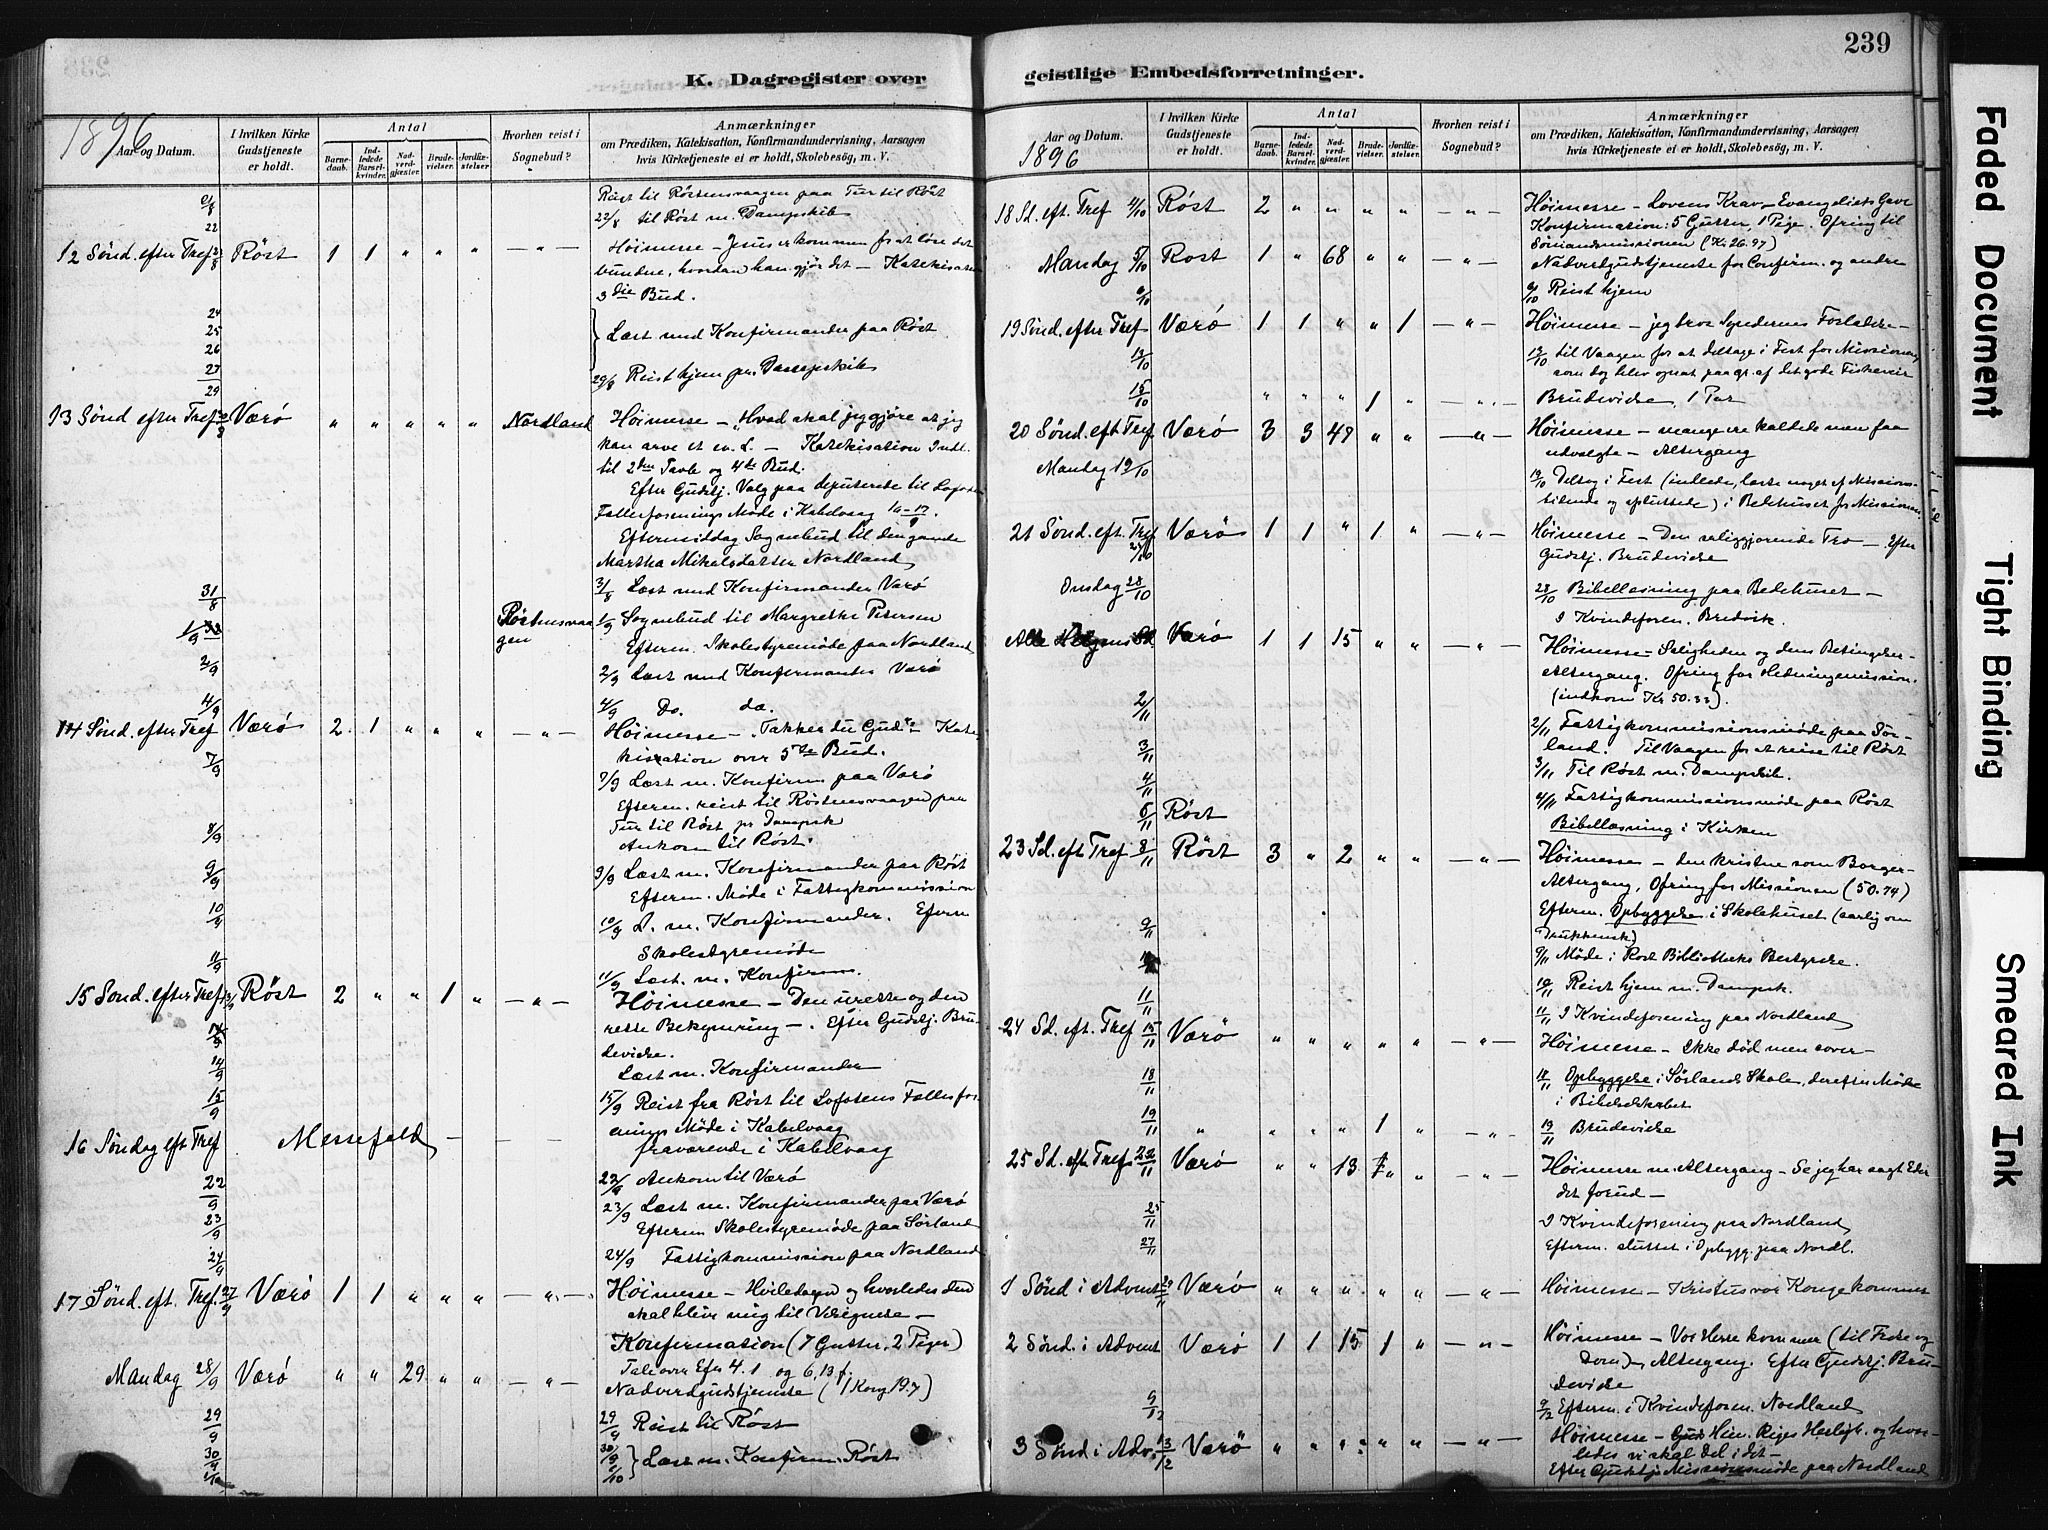 239
K. Dagregister over
geistlige Embedsforretninger.
1896
Aar og Datum.
I hvilken Kirke Gudstjeneste er holdt.
Antal
Barnedaab.
Indledede Barselkvinder.
Nadverdgjester.
Brudevielser.
Jordfæstelser
Hvorhen reist i Sognebud?
Anmærkninger
om Prædiken, Katekisation, Konfirmandundervisning, Aarsagen
hvis Kirketjeneste ei er holdt, Skolebesøg, m. V.
Reist til Røstensvaagen paa Tur til Røst
22/8 til Røst m. Dampskib
12 Sønd. efter Tref. Røst 1 1 " " " — " — Høimesse – Jesus er kommen for at løse det
bundne, hvordan han gjør det – Katekisation
3die Bud.
24
25
26
27
29
Læst med Konfirmander paa Røst
29/8 Reist hjem pr. Dampskib
13 Sønd efter Tref. Værø " " " " " Nordland Høimesse – "Hvad skal jeg gjøre at jeg
kan arve et ev. L. – Katekisation Indl.
til 2den Tavle og 4de Bud.
Efter Gudstj. Valg paa deputerede til Lofoten
Fællesforenings Møde i Kabelvaag
Eftermiddag Sognebud til den gamle
Martha Mikalsdatter Nordland
31/8 Læst med Konfirmander Værø
1/9 Røstnesvaagen 1/9 Sognebud til Margrethe Petersen
Efterm. Skolestyremøde paa Nordland
2/9 2/9 Læst med Konfirmander Værø
4/9 4/9 Do. do.
14 Sønd. efter Tref. Værø 2 1 " " " — " — Høimesse – "Takker du Gud" – Katekisation
over 5te Bud.
7/9 7/9 Læst m. Konfirm. paa Værø
Efterm. reist til Røstnesvaagen paa
Tur til Røst pr Dampsk
8/9 Ankom til Røst.
9/9 9/9 Læst m. Konfirmander paa Røst
Efterm. Møde i Fattigkommission
10/9 10/9 L. m. Konfirmander. Efterm
Skolestyremøde
11/9 11/9 Læst. m. Konfirm.
15 Sønd. efter Tref. 13/9 Røst 2 " " 1 " — " — Høimesse – Den urette og den
rette Bekymring –. Efter Gudstj. Brudevielse.
14/9 Læst m. Konfirmander
15/9 15/9 Reist fra Røst til Lofotens Fællesforenings
Møde i Kabelvaag
16 Søndag eft Tref Messefald — — fraværende i Kabelvaag
22/9 22/9 Ankom til Værø
23/9 23/9 Læst m. Konfirmander paa Værø
Efterm Skolestyremøde paa Sørland
24/9 24/9 Fattigkommission paa Nordland
17 Sønd. eft. Tref. 27/9 Værø 1 1 " " " — " — Høimesse – Hviledagen og hvorledes den
skal blive mig til Velsignelse –
Konfirmation (7 Gutter, 2 Piger)
Tale over Efes 4. 1 og 6, 13 f.
Mandag 28/9 Værø " " 29 " " — " — Nadverdgudstjeneste (1 Kong 19.7)
29/9 29/9 Reist til Røst
30/9 30/9 Læst m. Konfirm. Røst
1/10 1/10
Aar og Datum.
1896
I hvilken Kirke Gudstjeneste er holdt.
Antal
Barnedaab.
Indledede Barselkvinder.
Nadverdgjester.
Brudevielser.
Jordfæstelser
Hvorhen reist i Sognebud?
Anmærkninger
om Prædiken, Katekisation, Konfirmandundervisning, Aarsagen
hvis Kirketjeneste ei er holdt, Skolebesøg, m. V.
18 Sd. eft. Tref 4/10 Røst 2 " " " " — " — Høimesse – Lovens Krav – Evangeliets Gave
Konfirmation: 5 Gutter, 1 Pige. Ofring til
Sømandsmissionen (Kr. 26.97)
Mandag 5/10 Røst 1 " 68 " " — " — Nadverdgudstjeneste for Confirm. og andre
6/10 Reist hjem
19 Sønd. efter Tref Værø 1 1 " " 1 — " — Høimesse – jeg tror Syndernes Forladelse –
13/10 13/10 til Vaagen for at deltage i Fest for Missionen
som dog blev opsat paa gr. af det gode Fiskeveir
15/10 " " " 1 " — " — Brudevielse, 1 Par
20 Sønd. eft Tref. Værø 3 3 49 " " — " — Høimesse – mange ere kaldede men faa
udvalgte – Altergang
Mandag 19/10 19/10 Deltog i Fest (indlede, læste noget af Missionstidende
og afsluttede) i Bedehuset for Missionen.
21 Sønd. eft. Tref 25/10 Værø 1 1 " 1 " — " — Høimesse – Den saliggjørende Tro – Efter
Gudstj. Brudevielse
Onsdag 28/10 28/10 Bibellæsning paa Bedehuset –
I Kvindeforen. Bredvik.
Alle Helgens Sd. Værø 1 1 15 " " — " — Høimesse – Saligheden og dens Betingelser –
Altergang. Ofring for Hedningemission.
(indkom Kr 50.33).
2/11 2/11 Fattigkommissionsmøde paa Sørland.
Til Vaagen for at reise til Røst
3/11 3/11 Til Røst m. Dampskib.
4/11 4/11 Fattigkommissionsmøde paa Røst
6/11 Røst Bibellæsning i Kirken
23 Sd. eft Tref 8/11 Røst 3 " 2 " " — " — Høimesse – den kristne som Borger –
Altergang, Ofring for Missionen (50.74)
Efterm. Opbyggelse i Skolehuset (særlig om
Drukkensk)
9/11 9/11 Møde i Røst Bibliotheks Bestyrelse.
10/11 Reist hjem m. Dampsk.
11/11 11/11 I Kvindeforening paa Nordland
24 Sd. eft. Tref 15/11 Værø " " " " " — " — Høimesse – Ikke død men sover –
18/11 18/11 Opbyggelse i Sørlands Skole, derefter Møde
i Bibelselskabet
19/11 " " " " 1 " — " — 19/11 Brudevielse
25 Sd. efter Tref 22/11 Værø " " 13 " " — " — Høimesse m. Altergang – Se jeg har sagt Eder
det forud –
25/11 I Kvindeforening paa Nordland
27/11 Efterm. sluttet i Opbygg. paa Nordl.
1 Sønd i Advent 29/11 Værø " " " " " — " — Høimesse – Kristus vor Konge kommer
2 Sønd. i Advent Værø 1 1 15 1 " — " — Høimesse – Vor Herre kommer (til Frelse og
Dom) – Altergang. Efter Gudstj. Brudevielse
9/12 9/12 Efterm. i Kvindeforen. Nordland
3 Sønd i Adv. 13/12 Værø " " " " " — " — Høimesse – Him. Riges Herligh. og hvorledes
vi skal Del i det –
Efter Gudstj. Missionsmøde paa Nordland
Faded Document
Tight Binding
Smeared Ink